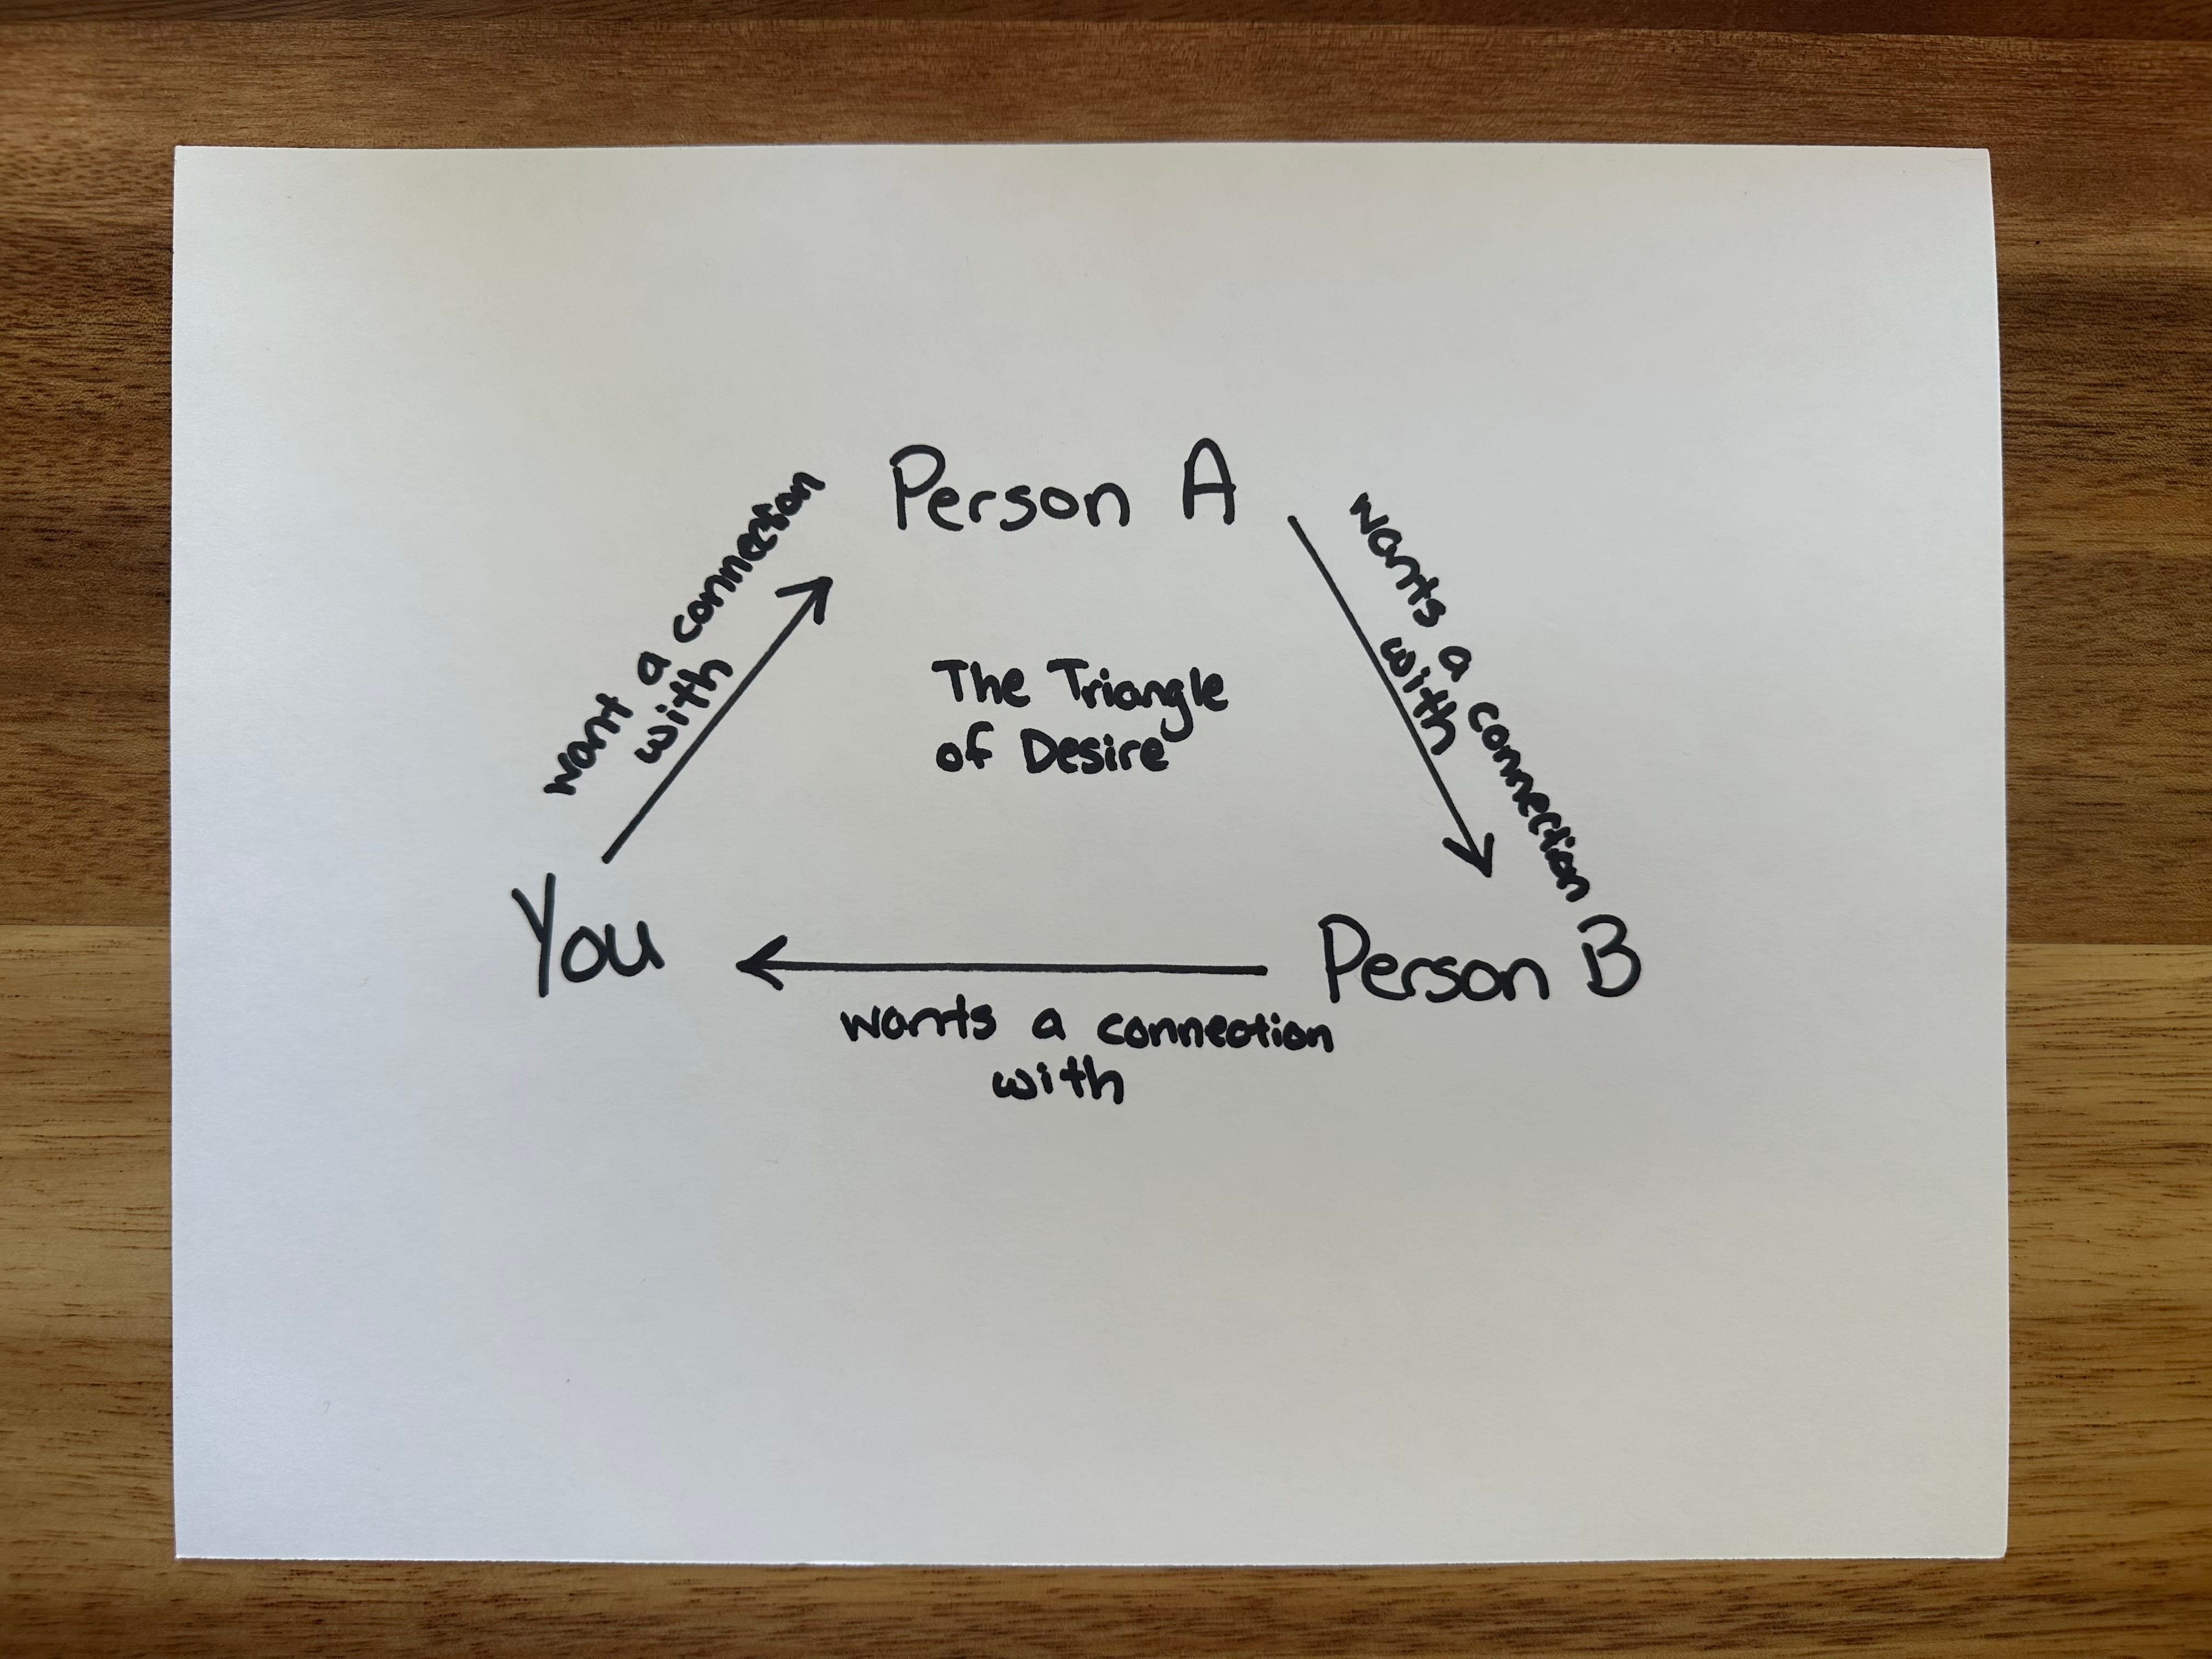 Person A
want a connection
with
wants a connection
with
The Triangle
of Desire
You
Person B
wants a connection
with